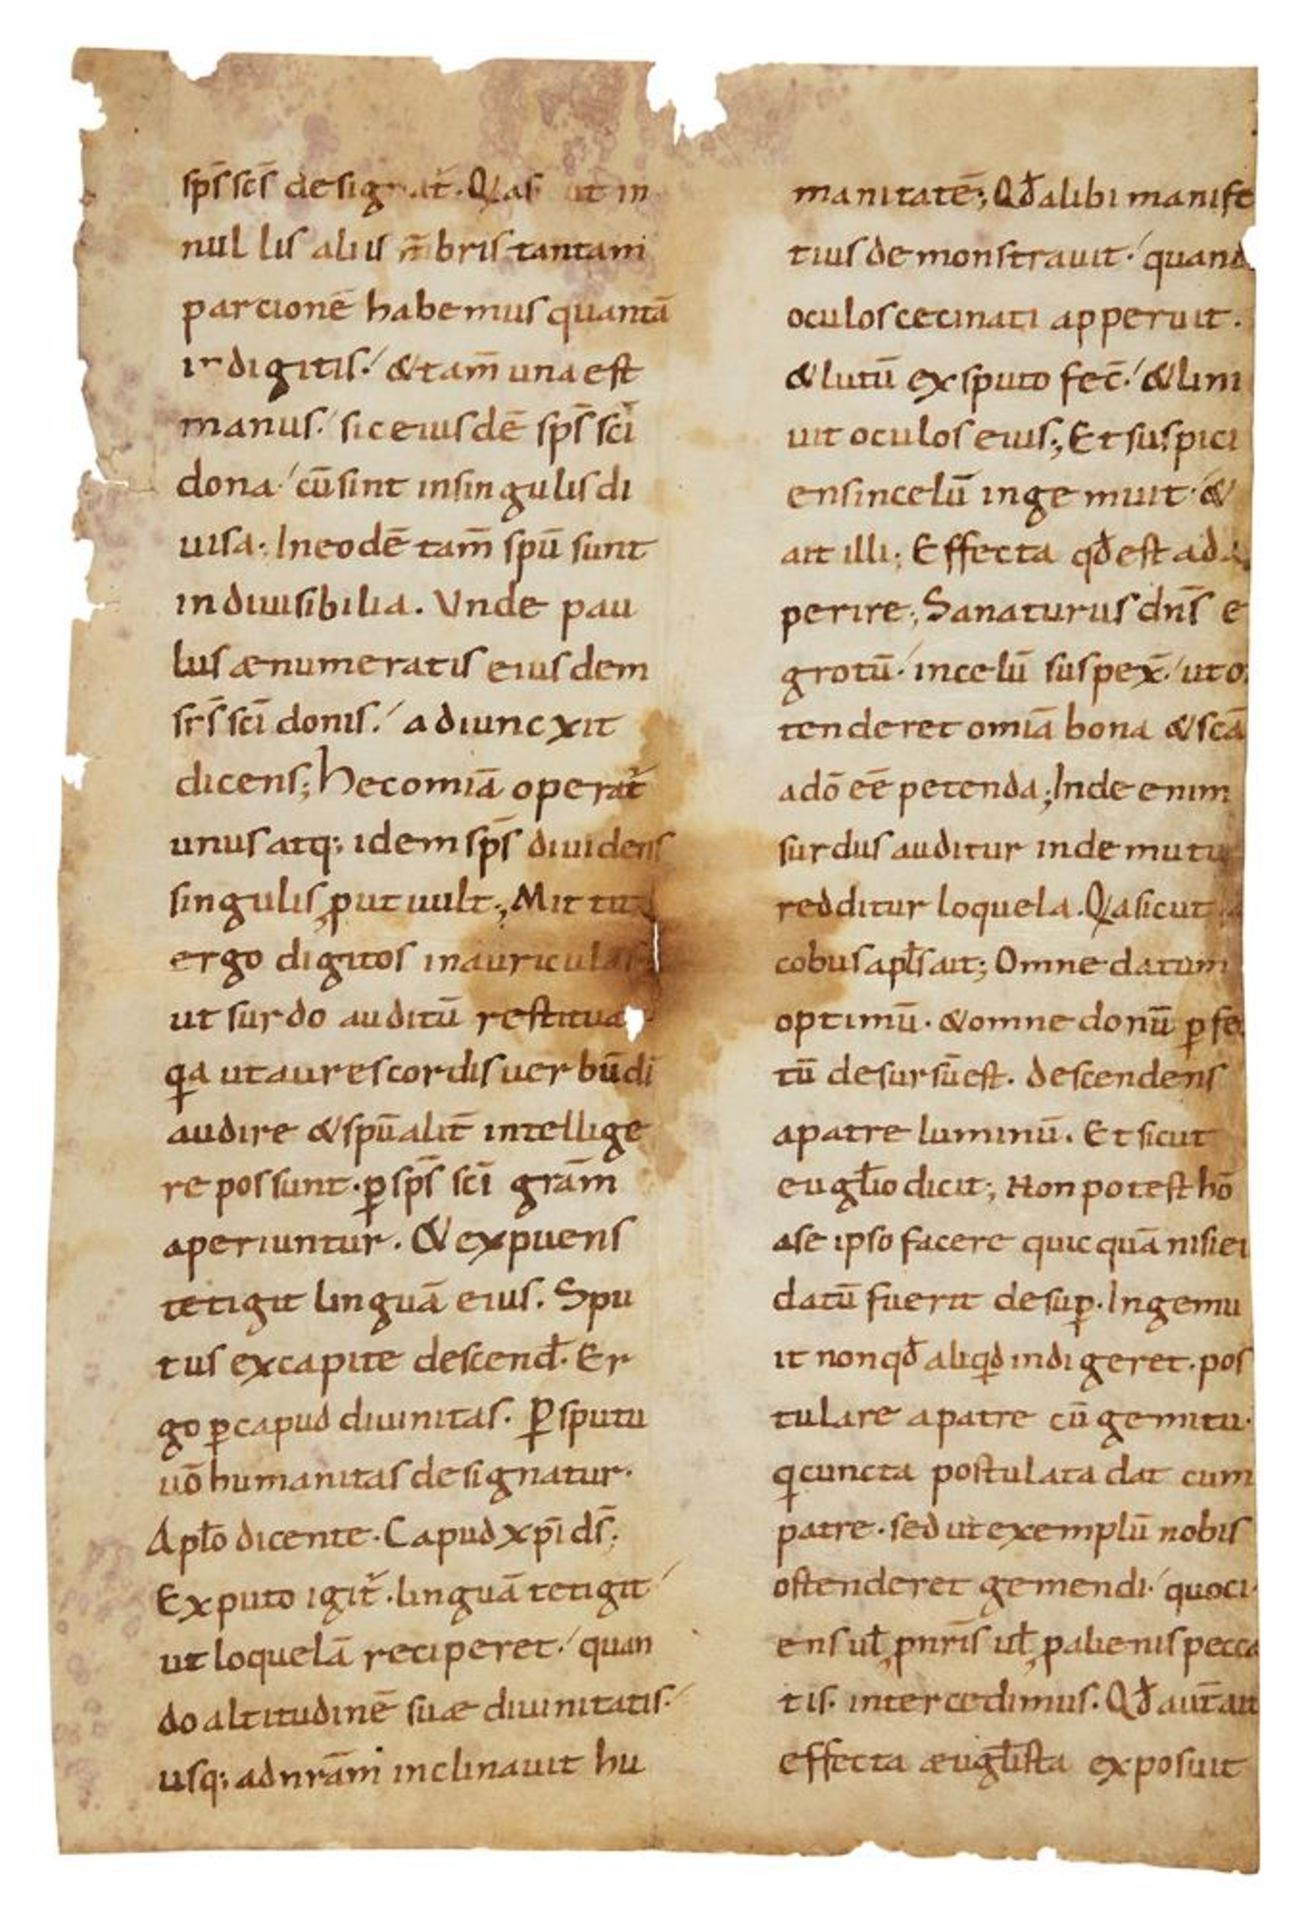 sp̄s sc̄s designat̄. Qa s ut in
nullis aliis m̄bris tantam
parcionē habemus quantā
in digitis. & tam̄ una est
manus. sic eiusdē sp̄s sc̄i
dona. cū sint insingulis di
uisa. In eodē tam̄ spū sunt
indiuisibilia. Vnde pau
lus ænumeratis eiusdem
sp̄s sc̄i donis. adiuncxit
dicens; Hec omiā operat̄
unus atq; idem sp̄s diuidens
singulis ꝓut uult; Mittit
ergo digitos inauricula
ut surdo auditū restitua
qa ut aures cordis uerbū di
audire & spūalit̄ intellige
re possunt. ꝑ sp̄s sc̄i grām
aperiuntur. & expuens
tetigit linguā eius. Spu
tus excapite descend̄. Er
go ꝑ capud diuinitas. Ꝑ sputu
uō humanitas designatur.
Apl̄o dicente. Capud xp̄i ds̄;
Exputo igit̄. linguā tetigit
ut loquelā reciperet. quan
do altitudinē suæ diuinitatis.
usq; adnrām inclinauit hu
manitatē; Qd̄ alibi manife
tius demonstrauit. quand
oculos cecinati apperuit.
& lutū ex sputo fec̄. & lini
uit oculos eius; Et suspici
ens incelū ingemuit. &
ait illi; Effecta qd̄ est ada
perire; Sanaturus dn̄s e
grotū. incelū suspex̄. ut o
tenderet omiā bona & scā
adō eē petenda; Inde enim
surdus auditur inde mutu
redditur loquela. Qa sicut ia
cobus apl̄s ait; Omne datum
optimū. & omne donū ꝑfe
tū desursū est. descendens
apatre luminū. Et sicut
eugl̄io dicit; Non potest hō
ase ipso facere quicquā nisi ei
datū fuerit desuꝑ. Ingemu
it non qd̄ aliqd̄ indigeret. pos
tulare apatre cū gemitu.
qi cuncta postulata dat cum
patre. sed ut exemplū nobis
ostenderet gemendi. quoci
ens ul̄ ꝓ nrīs ul̄ ꝓ alienis pecca
tis. intercedimus. Qd̄ aut̄ ait
effecta æugl̄ista exposuit